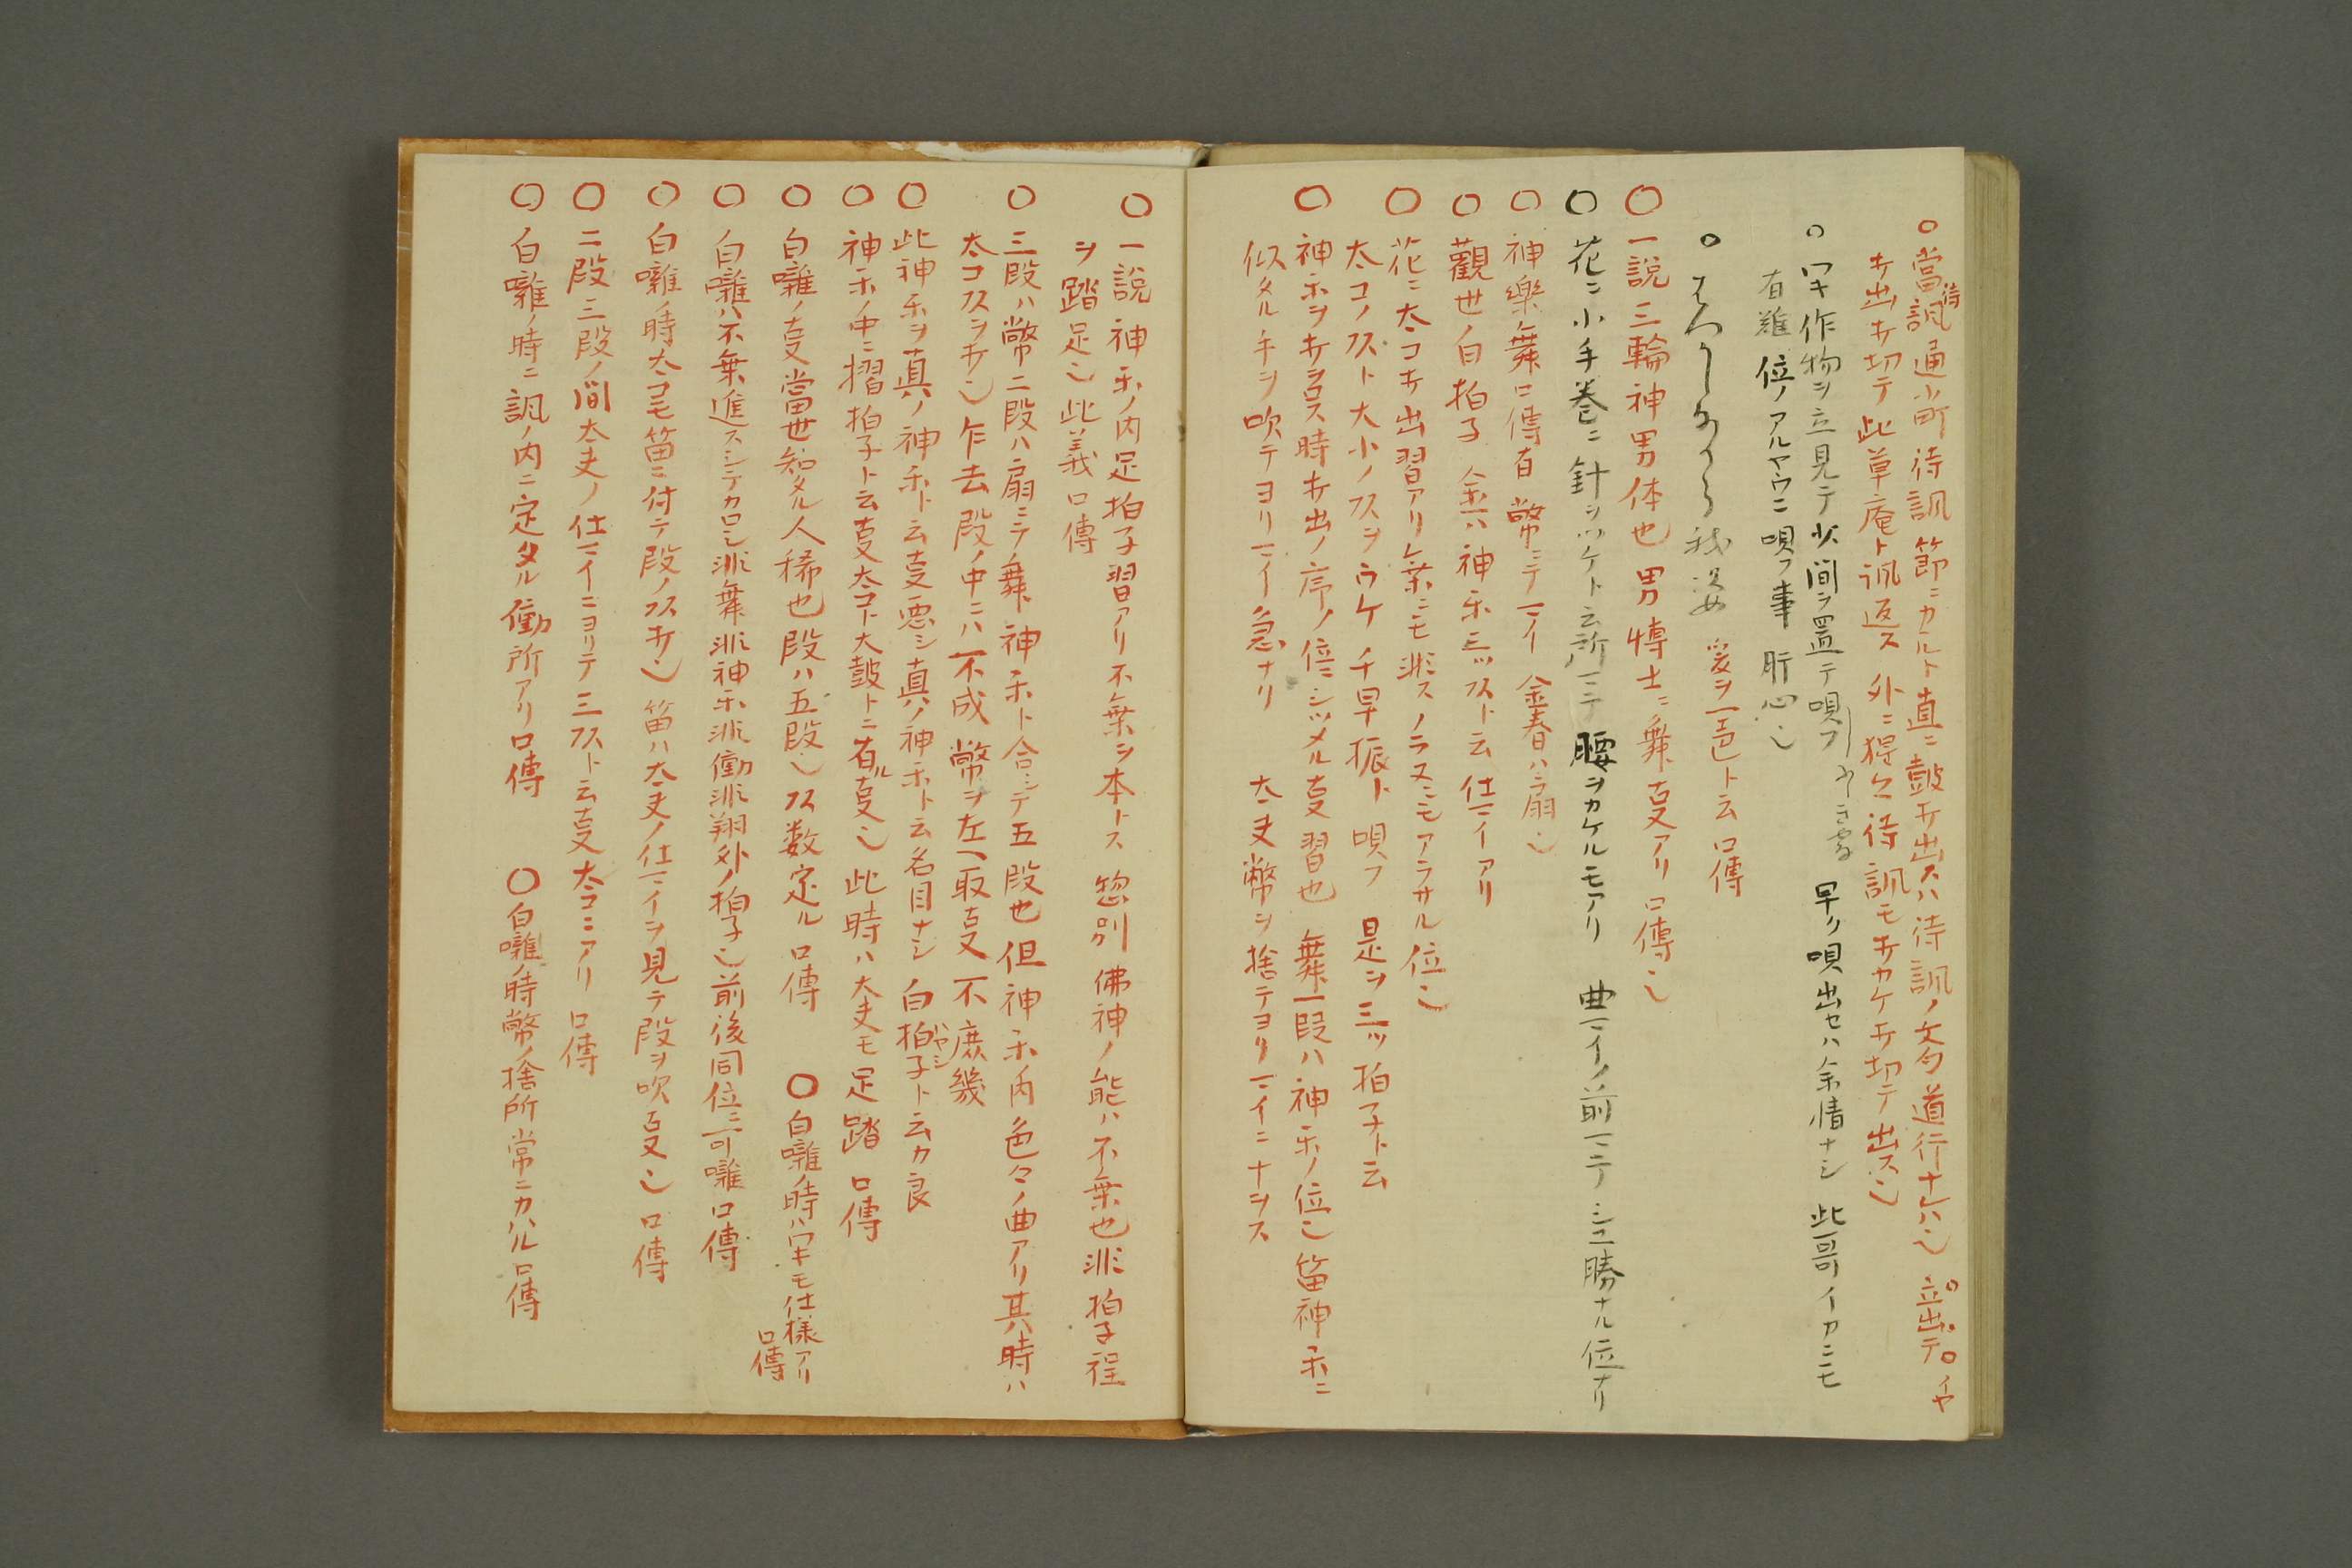 ○當訊通小町待訊節ニカルト直ニ鼓打出スハ待訊ノ文句道行ナレハ也 立出テ イヤ
打出打切テ此草庵ト訊返ス 外ニ 待訊モ打カケ打切テ出ス也
○ワキ作物ヲ立見テ少間ヲ置テ唄フ 早ク唄出セハ余情ナシ 此哥イカニモ
有難位ノアルヤウニ唄フ事 肝心也
○はつかしなから我姿 爰ヲ一色ト云 口傳
○一説三輪神男体也 男博士ニ舞亊アリ 口傳也
○花ニ小手巻ニ針ヲツケト云所ニテ腰ヲカケルモアリ 曲マイノ前ニテ 勝ナル位ナリ
○神樂舞口傳有 幣ニテマイ 金春ハ扇也
○觀世ノ白拍子 金ハ神乐三ツ頭ト云仕マイアリ
○花ニ太コ打出習アリ 樂ニモ非ス ノラヌニモアラサル位也
太コノ頭ト大小ノ頭ヲウケ 千早振ト唄フ 是ヲ三ツ拍子ト云
○神乐ヲ打ヲロス時打出ノ序ノ位ニシツメル亊習也 舞一段ハ神乐ノ位也 笛神乐ニ
似タル手ヲ吹テヨリマイ急ナリ 太夫幣ヲ捨テヨリマイニナヲス
○一説神乐ノ内足拍子習アリ 不樂ヲ本トス 惣別佛神ノ能ハ不樂也 非拍子程
ヲ踏足也 此義口傳
○三段ハ幣二段ハ扇ニテノ舞 神乐ト合シテ五段也 但神乐内色々ノ曲アリ 其時ハ
太コ頭ヲ打也 乍去段ノ中ニハ不成 幣ヲ左ヘ取亊 不庶幾
○此神乐ヲ真ノ神乐ト云亊悪シ 真ノ神乐ト云名目ナシ 白拍子ト云カ良
○神乐ノ中ニ摺拍子ト云亊太コト大鼓トニ有ル亊也 此時ハ太夫モ足踏 口傳
○白囃ノ亊當世知タル人稀也 段ハ五段也 頭数定ル 口傳 ○白囃ノ時ハワキモ仕様アリ
口傳
○白囃ハ不樂進スシテカロシ 非舞非神乐非働非翔外ノ拍子也 前後同位ニ可囃 口傳
○白囃ノ時太コモ笛ニ付テ段ノ頭打也 笛ハ太夫ノ仕マイヲ見テ段ヲ吹亊也 口傳
○二段三段ノ間太夫ノ仕マイニヨリテ三頭ト云亊太コニアリ 口傳
○白囃ノ時ニ訊ノ内ニ定タル働所アリ 口傳 ○白囃ノ時幣ノ捨所常ニカハル 口傳